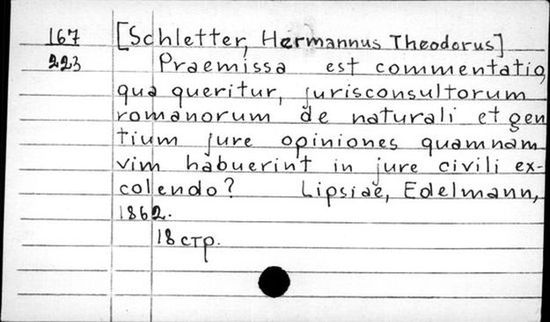 167 [Schletter, Hermannus Theodorus]
223 Praemissa est commentatio,
qua queritur, jurisconsultorum
romanorum de naturali et gen
tium jure opiniones quamnam
vim habuerint in jure civili ex-
colendo? Lipsiae, Edelmann,
1862.
18 стр.